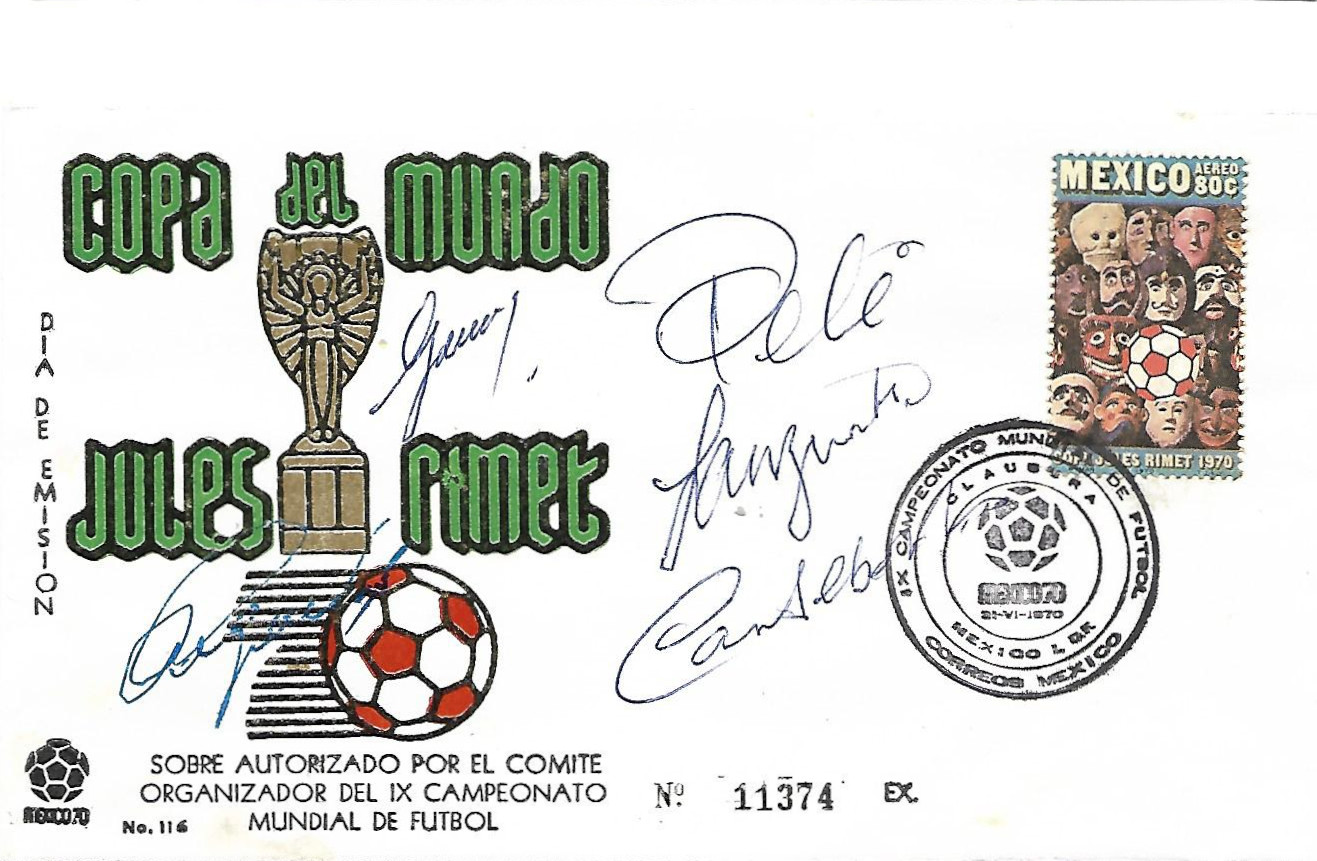 COPA del MUNDO
JULES RIMET
DIA DE EMISION
MEXICO AEREO 80¢
JULES RIMET 1970
Pelé
IX CAMPEONATO MUNDIAL DE FUTBOL
CLAUSURA
MEXICO70
21-VI-1970
MEXICO 1, D.F.
CORREOS MEXICO
MEXICO70
No. 116
SOBRE AUTORIZADO POR EL COMITE
ORGANIZADOR DEL IX CAMPEONATO
MUNDIAL DE FUTBOL
Nº 11374 EX.